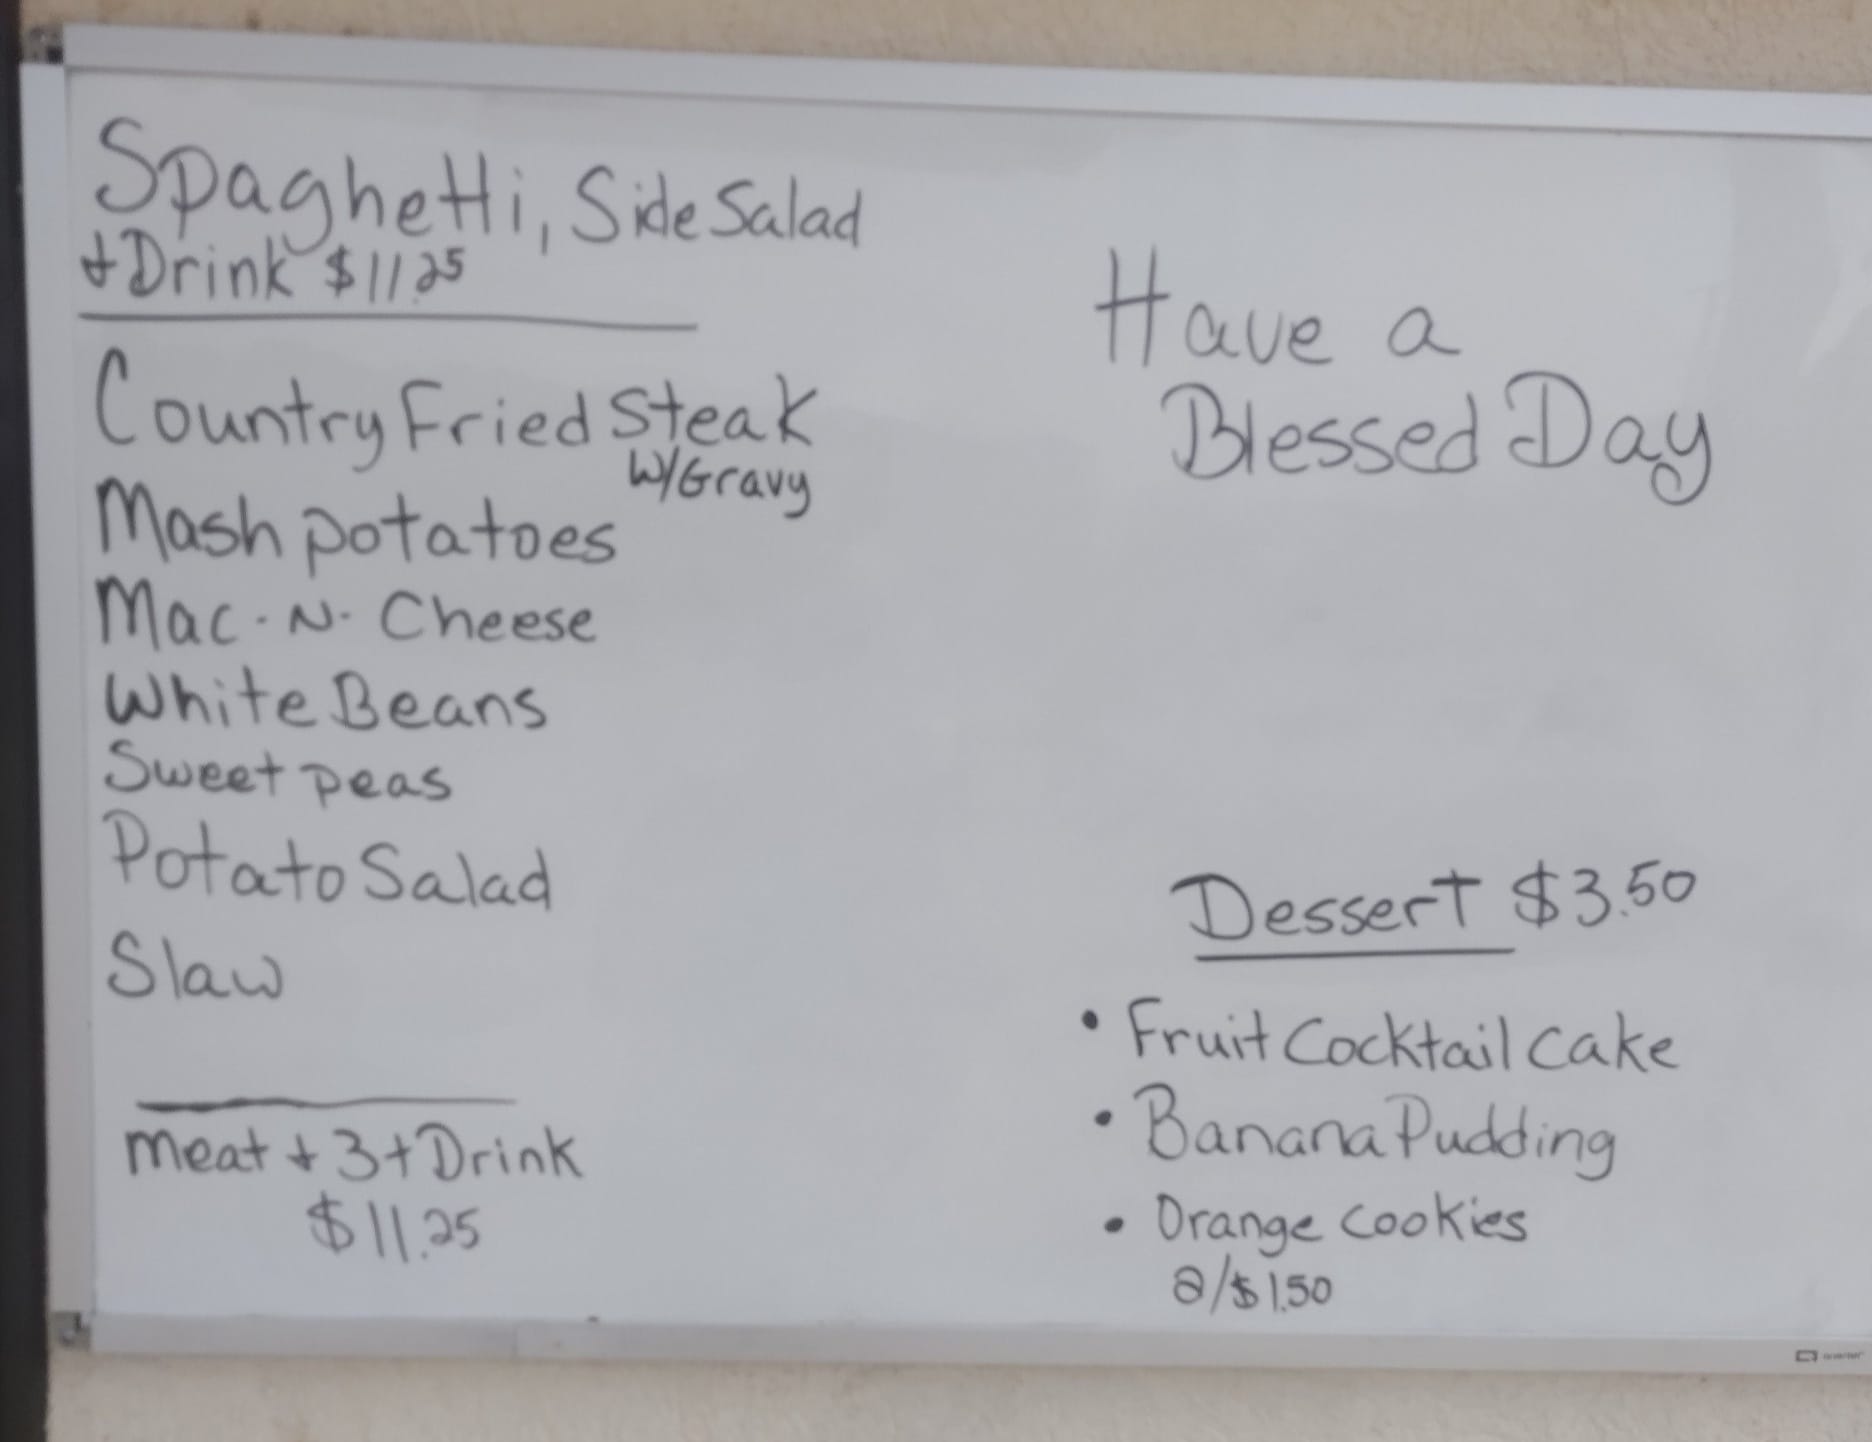 Spaghetti, Side Salad
+ Drink $11.25
Country Fried Steak
W/Gravy
Mash potatoes
Mac-N-Cheese
White Beans
Sweet peas
Potato Salad
Slaw
meat + 3 + Drink
$11.25
Have a
Blessed Day
Dessert $3.50
• Fruit Cocktail Cake
• Banana Pudding
• Orange Cookies
2/$1.50